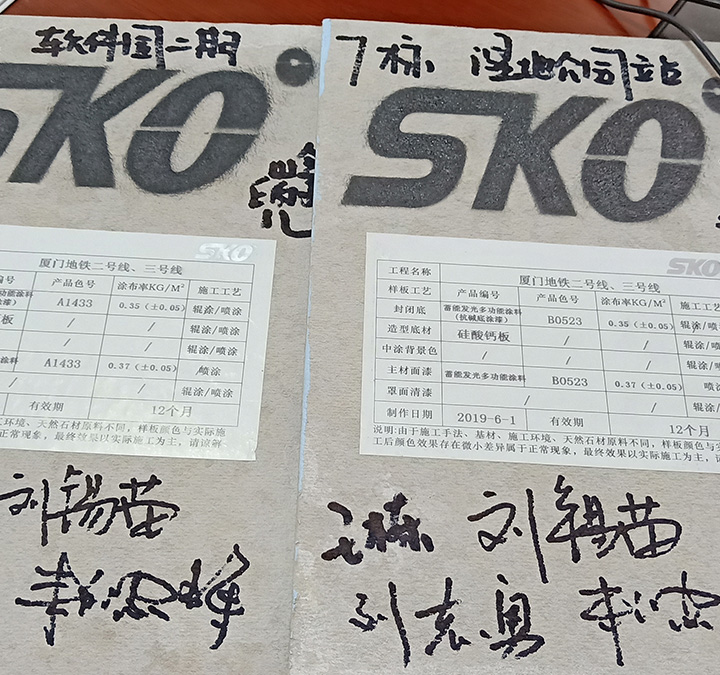 软件园二期
SKO
SKO
厦门地铁二号线、三号线
编号 产品色号 涂布率KG/M² 施工工艺
A1433 0.35（±0.05） 辊涂/喷涂
板 / / 辊涂/喷涂
/ / 辊涂/喷涂
涂料 A1433 0.37（±0.05） 喷涂
/ / 辊涂/喷涂
有效期 12个月
工环境、天然石材原料不同，样板颜色与实际施
正常现象，最终效果以实际施工为主，请谅解
刘锡苗
7标 湿地公园站
SKO
SKO
工程名称 厦门地铁二号线、三号线
样板工艺 产品编号 产品色号 涂布率KG/M² 施工工艺
封闭底 蓄能发光多功能涂料（抗碱底涂漆） B0523 0.35（±0.05） 辊涂/喷
造型底材 硅酸钙板 / / 辊涂/喷
中涂背景色 / / / 辊涂/喷
主材面漆 蓄能发光多功能涂料 B0523 0.37（±0.05） 喷
罩面清漆 / / 辊涂/喷
制作日期 2019-6-1 有效期 12个月
说明:由于施工手法、基材、施工环境、天然石材原料不同，样板颜色与实
工后颜色效果存在微小差异属于正常现象，最终效果以实际施工为主，请
七标 刘锡苗